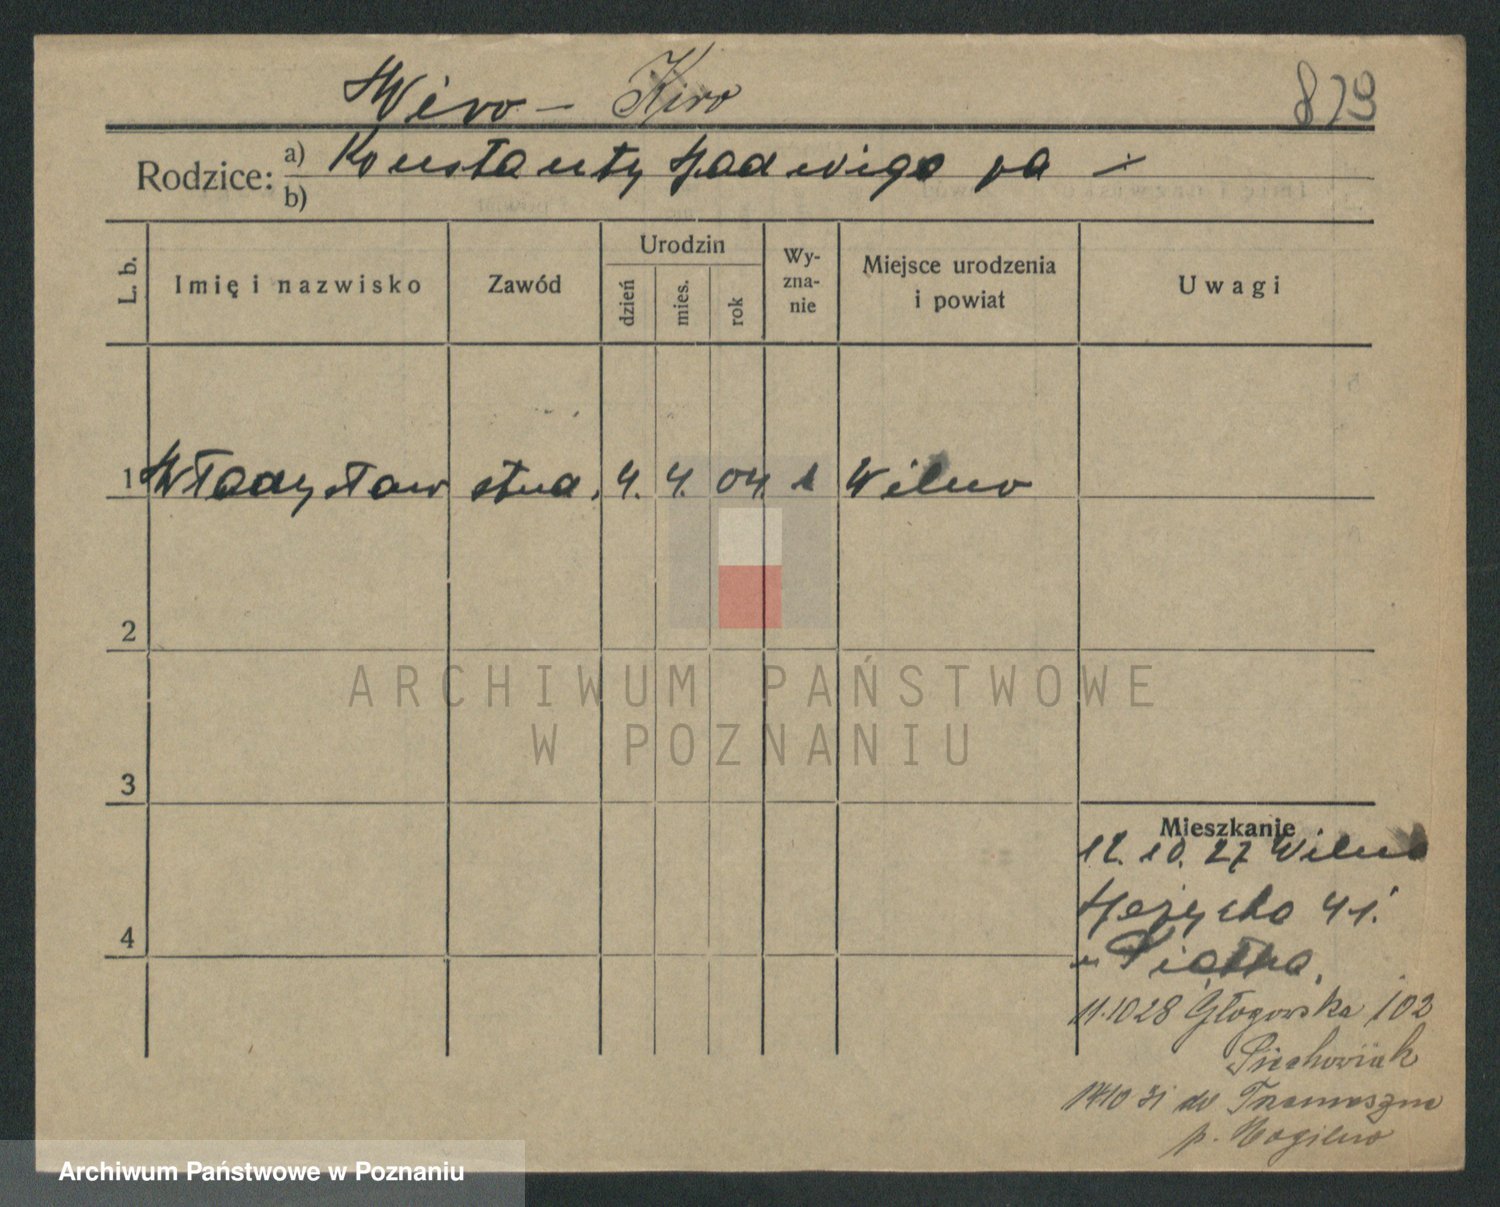 Wiro - Kiro
879
Rodzice: a) Konstanty Jadwiga
b)
L. b.
Imię i nazwisko
Zawód
Urodzin
dzień
mies.
rok
Wy-
zna-
nie
Miejsce urodzenia
i powiat
Uwagi
1 Władysław stud. 4. 4. 04 1 Wilno
2
ARCHIWUM PAŃSTWOWE
W POZNANIU
3
Mieszkanie
12. 10. 27 Wilno
41.
4
11.10 28 Głogowska 102
31 do
p. Mogilno
Archiwum Państwowe w Poznaniu